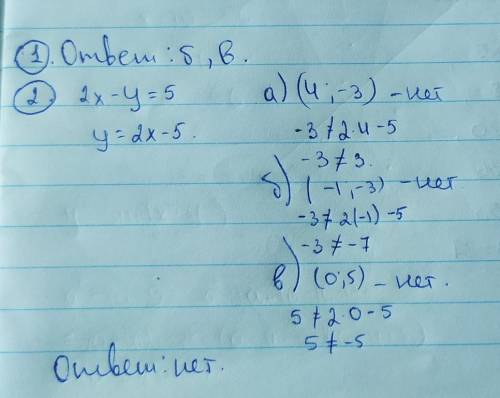 1. Ответ: б, в.
2. 2x-y=5
y=2x-5.
а) (4;-3) -нет
-3≠2·4-5
-3≠3.
б) (-1;-3) -нет
-3≠2(-1)-5
-3≠-7
в) (0;5) - нет.
5≠2·0-5
5≠-5
Ответ: нет.